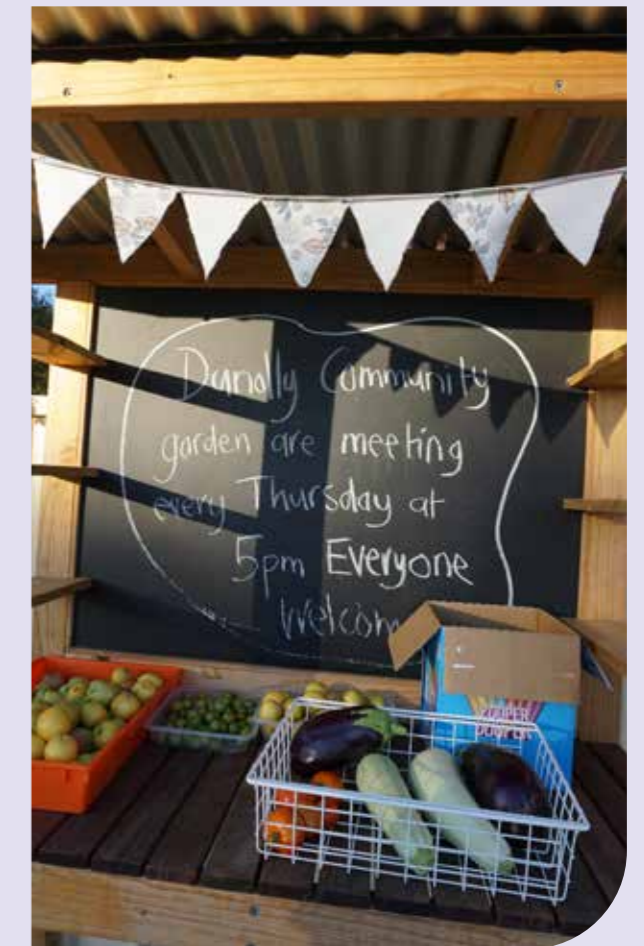 Dunolly Community
garden are meeting
every Thursday at
5pm Everyone
Welcom
ZOOPER
DOOPER